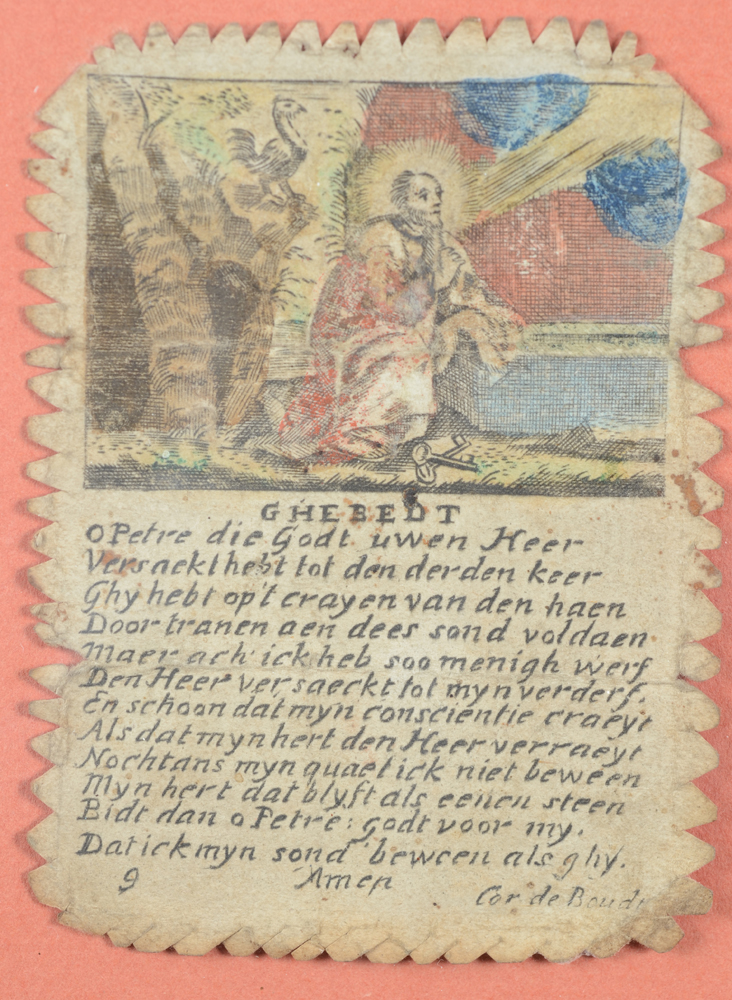 GHEBEDT
O Petre die Godt uwen Heer
Versaekt hebt tot den derden keer
Ghy hebt op't crayen van den haen
Door tranen aen dees sond voldaen
Maer ach ick heb soo menigh werf
Den Heer versaeckt tot myn verderf.
En schoon dat myn conscientie craeyt
Als dat myn hert den Heer verraeyt
Nochtans myn quaet ick niet beween
Myn hert dat blyft als eenen steen
Bidt dan o Petre: godt voor my.
Dat ick myn sond beween als ghy.
Amen
9
Cor de Boudt